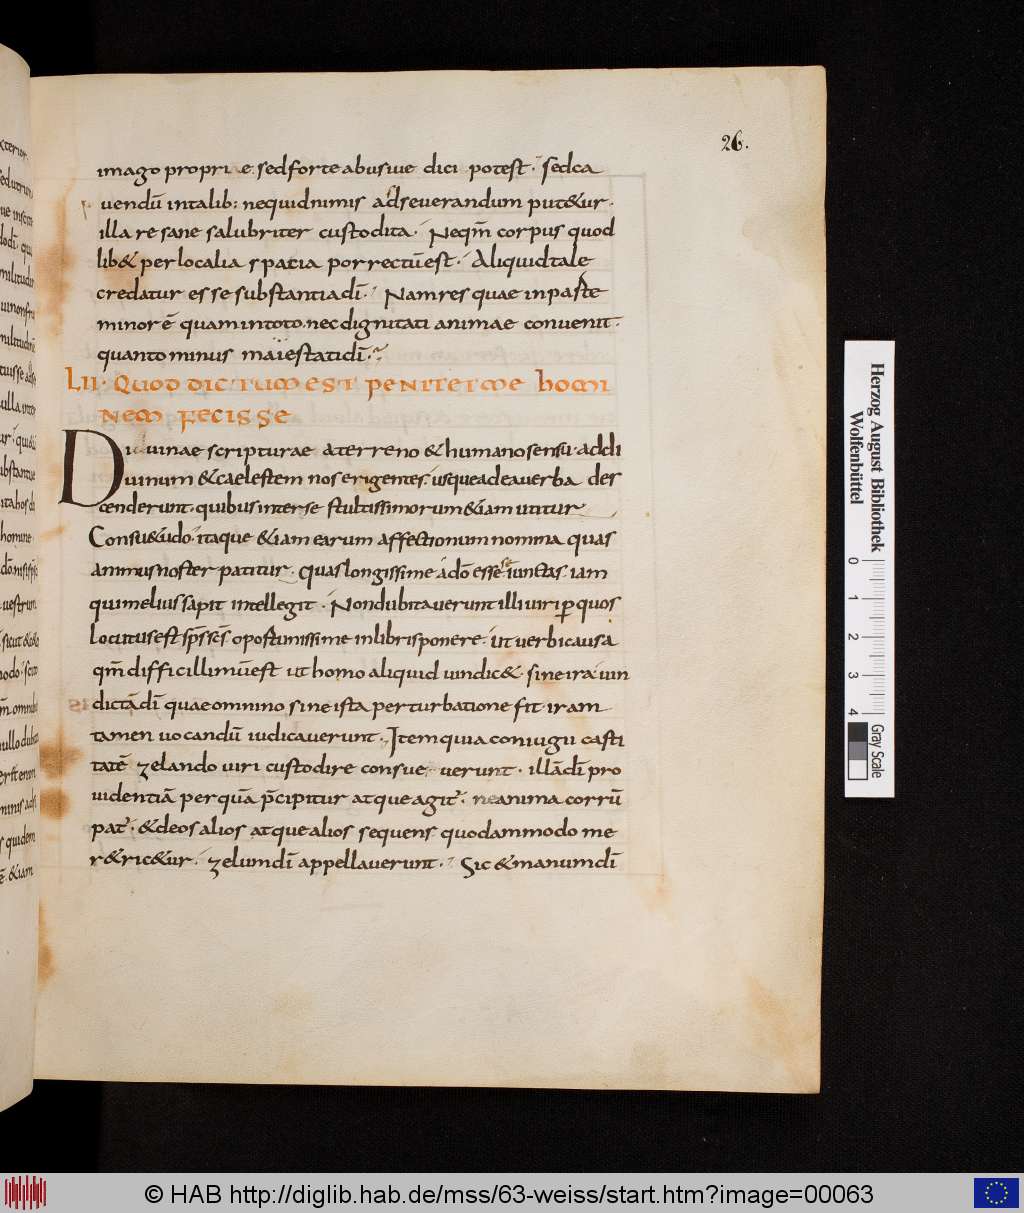 26.
imago propriae sed forte abusiue dici potest· sed ca
uendū in talib: nequid nimis adseuerandum put&ur·
illa re sane salubriter custodita· Neqm̄ corpus quod
lib& per localia spatia porrectū est· Aliquid tale
credatur esse substantia dī· Nam res quae in paste
minor ē quam in toto. nec dignitati animae conuenit·
quanto minus maiestati dī·
LII· QUOD DICTUM EST PENITET ME HOMI
NEM FECISSE
Diuinae scripturae a terreno & humano sensu· ad di
uinum & caelestem nos erigentes· usque ad ea uerba des
cenderunt· quibus inter se stultissimorum &iam utitur
Consu&udo· itaque &iam earum affectionum nomina quas
animus noster patitur· quas longissime a dō esse seiunctas· iam
qui melius sapit intellegit· Non dubitauerunt illi uiri ꝑ quos
locutus est sp̄s sc̄s oportunissime in libris ponere· ut uerbi causa
qm̄ difficillimū est ut homo aliquid uindic&· sine ira uin
dictā dī quae omnino sine ista perturbatione fit· iram
tamen uocandū iudicauerunt· Item quia coniugii casti
tatē zelando uiri custodire consueuerunt· illā dī pro
uidentiā per quā p̄cipitur atque agit᷑· ne anima corrū
pat᷑· & deos alios atque alios sequens quodammodo me
r&ric&ur· zelum dī appellauerunt· Sic & manum dī
Herzog August Bibliothek
Wolfenbüttel
0 1 2 3 4
Gray Scale
© HAB http://diglib.hab.de/mss/63-weiss/start.htm?image=00063